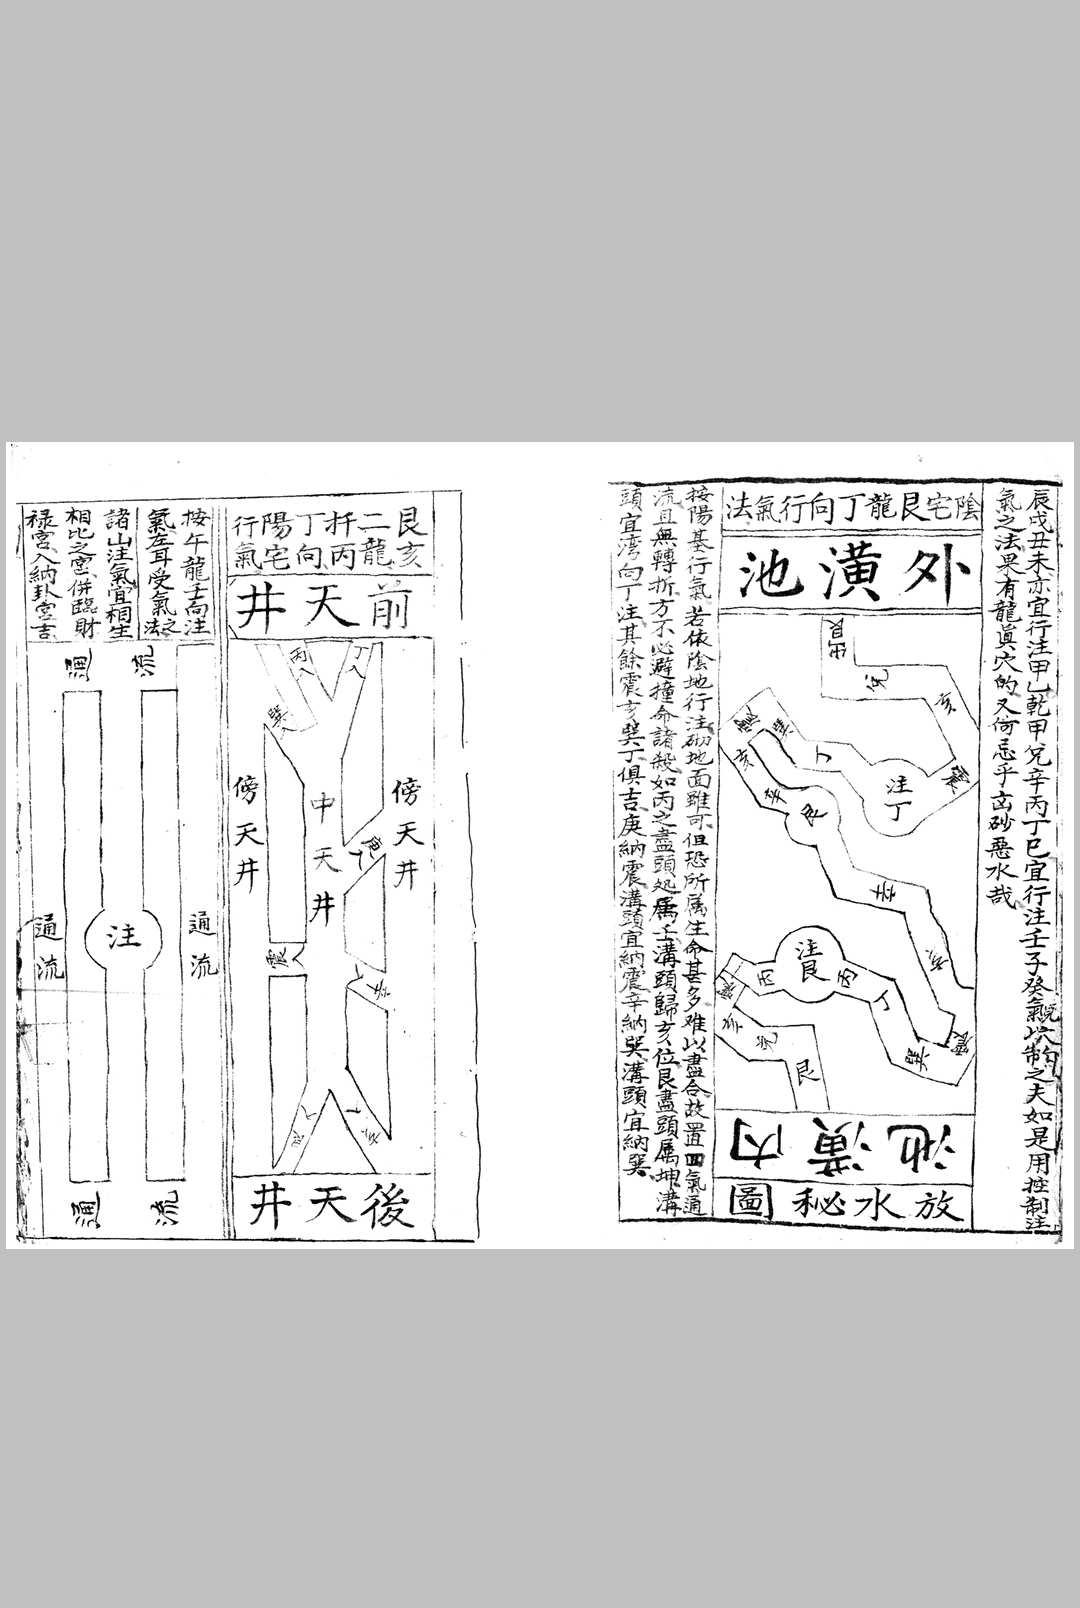 辰戌丑未亦宜行注甲乙乾甲兌辛丙丁巳宜行注壬子癸氣既坎的制之夫如是用控制注
氣之法果有龍眞穴的又何忌乎凶砂惡水哉
陰宅艮龍丁向行氣法
外潢池
出艮
兌
亥
震
注丁
丁
巽
震
亥
辛
辛
亥
震
巽
丁
丙
注艮
丙
震
辛
兌
艮
內潢池
放水秘圖
按陽基行氣若依陰地行注砌地面雖可但恐所属生命甚多难以盡合故置四氣通
流且無轉折方不必避撞命諸殺如丙之盡頭処属壬溝頭歸亥位艮盡頭属坤溝
頭宜湾向丁注其餘震亥巽丁俱吉庚納震溝頭宜納震辛納巽溝頭宜納巽
艮亥二龍扦丙丁向陽宅行氣
前天井
丁入
丙入
巽
傍天井
中天井
傍天井
庚入
震
辛
後天井
按午龍壬向注
氣左耳受氣之法
諸山注氣宜相生
相比之宮併臨財
禄宮入納卦宮吉
通流
通流
注
通流
通流